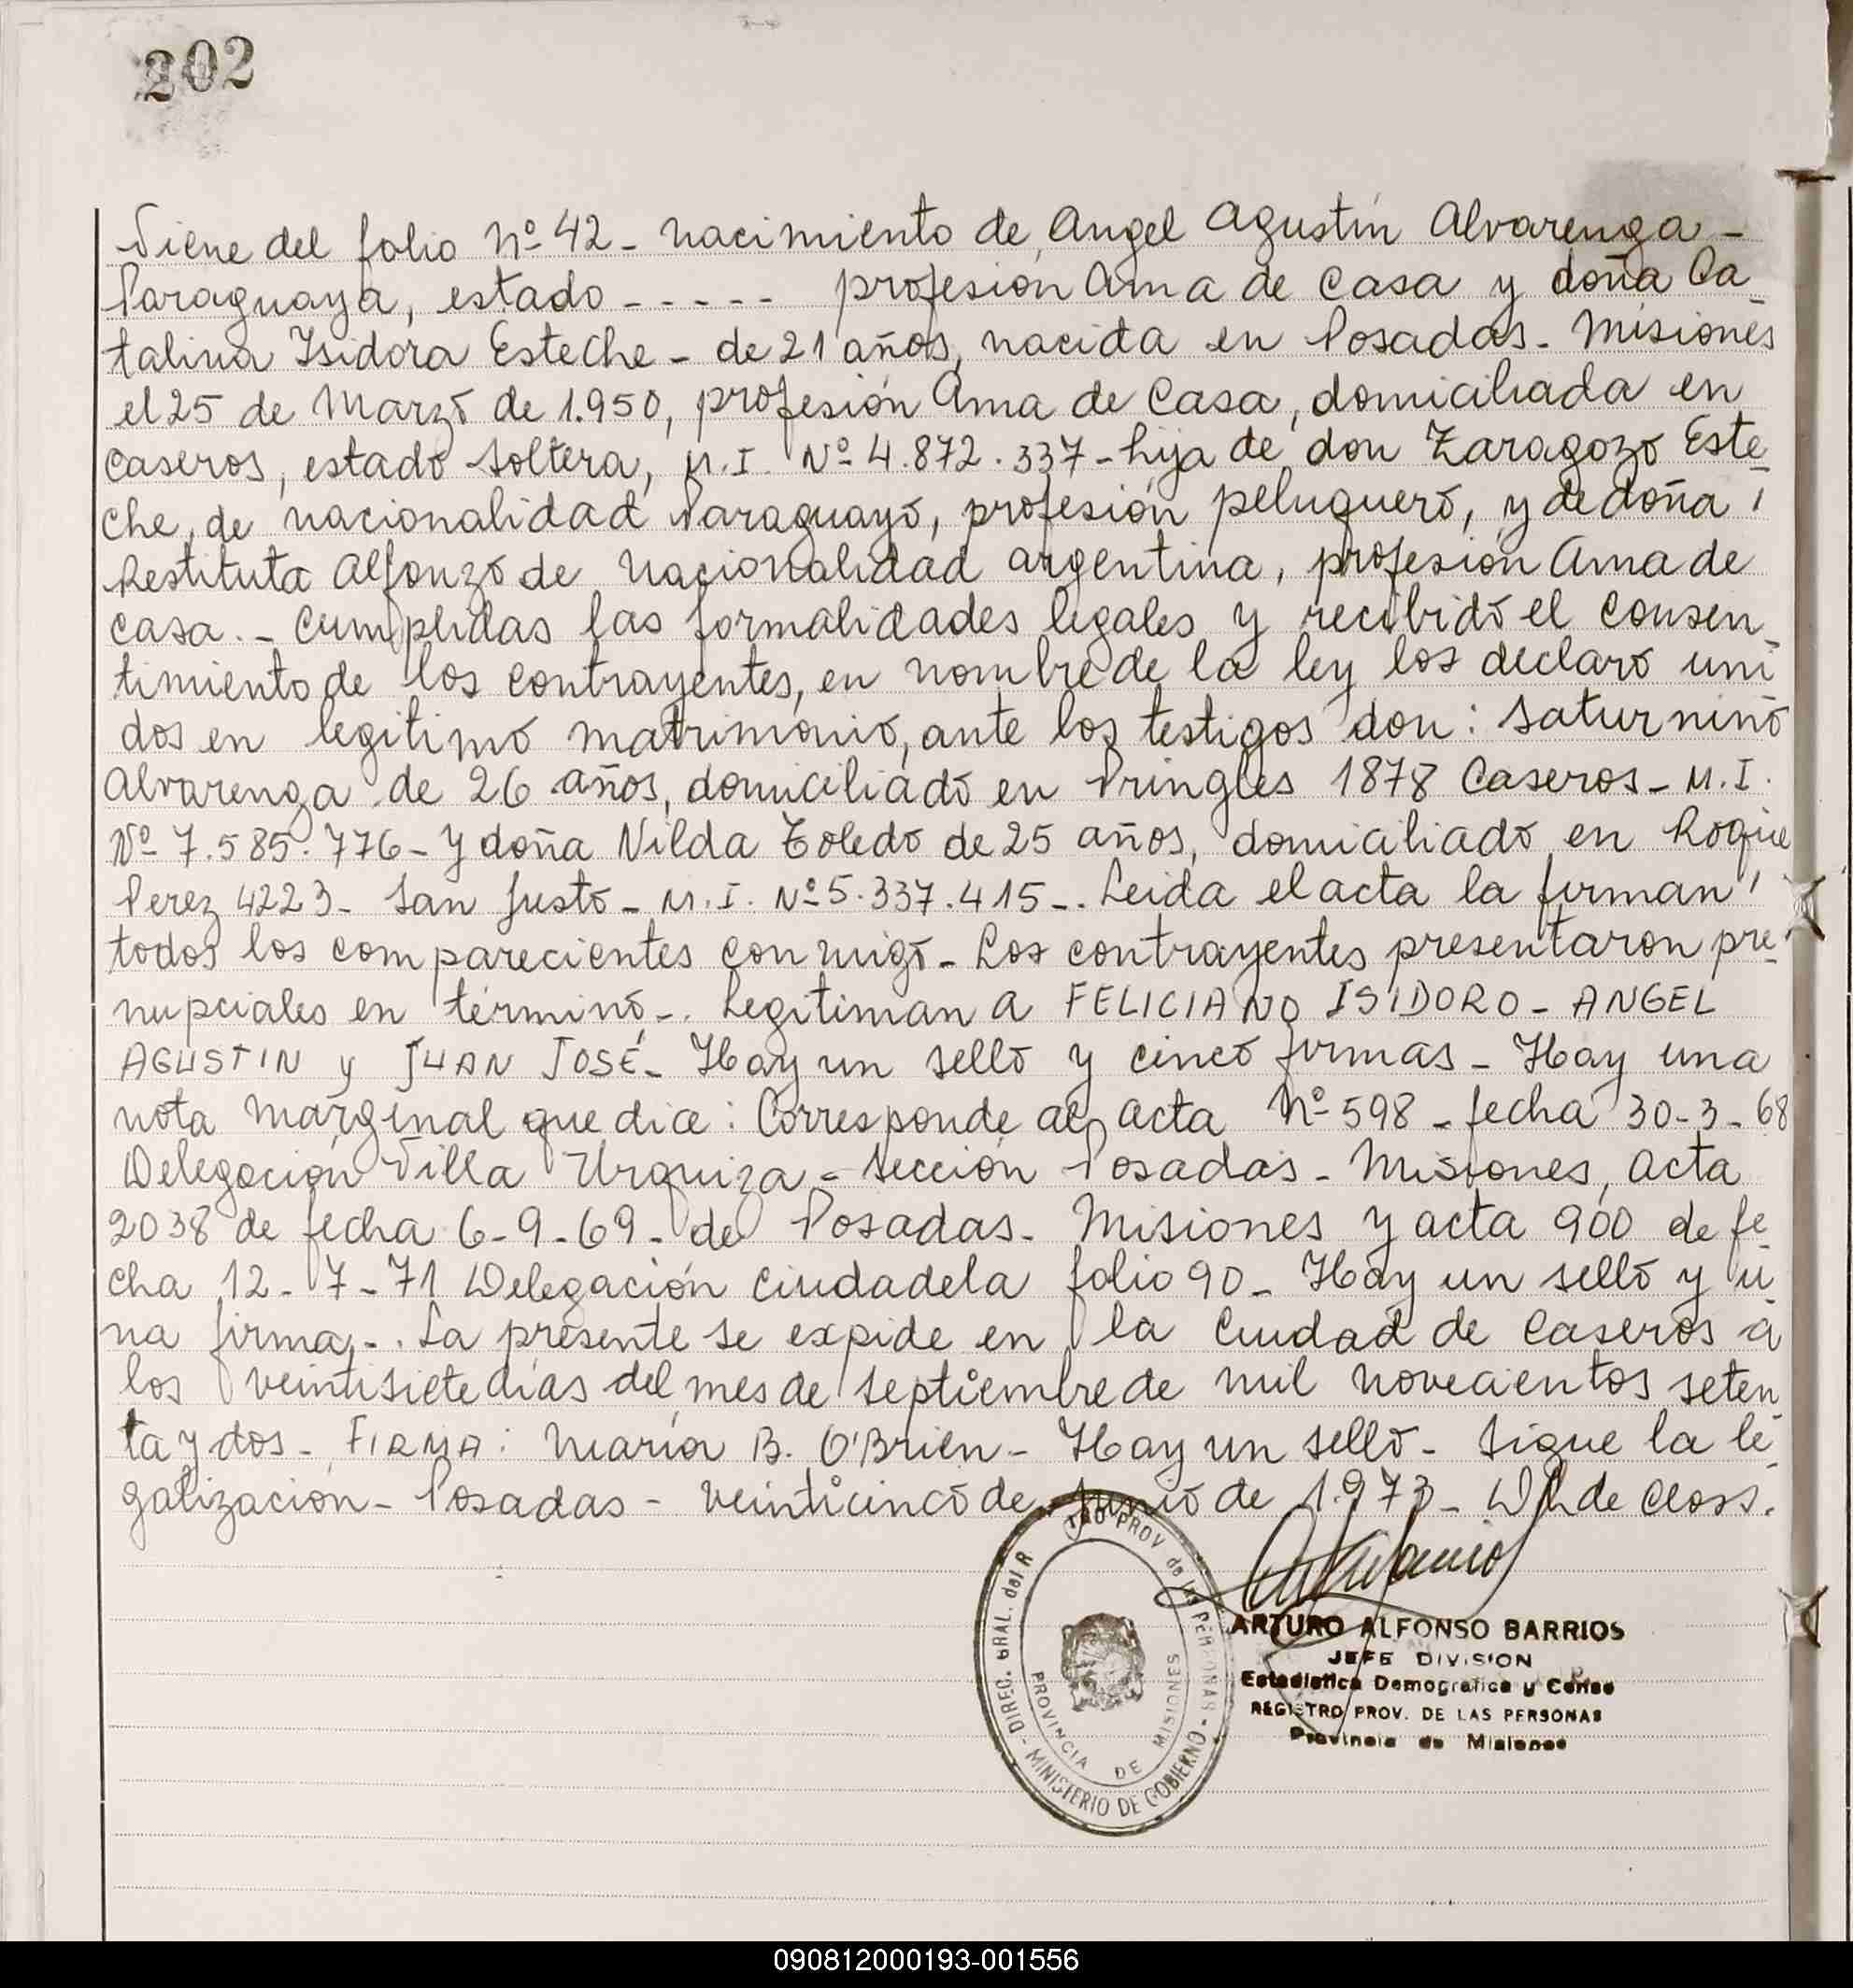 202
Viene del folio Nº 42 - nacimiento de Angel Agustín Alvarenga -
Paraguaya, estado - - - - - profesión Ama de Casa y doña Ca_
talina Isidora Esteche - de 21 años, nacida en Posadas - Misiones
el 25 de Marzo de 1.950, profesión Ama de Casa, domiciliada en
Caseros, estado soltera, M.I. Nº 4.872.337 - hija de don Zaragozo Este_
che, de nacionalidad Paraguayo, profesión peluquero, y de doña
Restituta Alfonzo de nacionalidad argentina, profesión Ama de
casa. - Cumplidas las formalidades legales y recibido el consen_
timiento de los contrayentes, en nombre de la ley los declaro uni_
dos en legitimo matrimonio, ante los testigos don: Saturnino
Alvarenga de 26 años, domiciliado en Pringles 1878 Caseros - M.I.
Nº 7.585.776 - y doña Nilda Toledo de 25 años, domiciliado en Roque
Perez 4223 - San Justo - M.I. Nº 5.337.415 -. Leida el acta la firman
todos los comparecientes conmigo - Los contrayentes presentaron pre_
nupciales en término -. Legitiman a FELICIANO ISIDORO - ANGEL
AGUSTIN y JUAN JOSÉ - Hay un sello y cinco firmas - Hay una
nota marginal que dice: Corresponde al acta Nº 598 - fecha 30-3-68
Delegación Villa Urquiza - Sección Posadas - Misiones, acta
2038 de fecha 6-9-69 - de Posadas - Misiones y acta 900 de fe_
cha 12-7-71 Delegación Ciudadela folio 90 - Hay un sello y u_
na firma -. La presente se expide en la Ciudad de Caseros a
los veintisiete días del mes de septiembre de mil novecientos seten_
ta y dos - FIRMA: María B. O'Brien - Hay un sello - Sigue la le_
galización - Posadas - veinticinco de junio de 1.973 - W.L. de Closs.
DIREC. GRAL. del R PROV de las PERSONAS - MINISTERIO DE GOBIERNO -
PROVINCIA DE MISIONES
ARTURO ALFONSO BARRIOS
JEFE DIVISION
Estadistica Demografica y Censo
REGISTRO PROV. DE LAS PERSONAS
Provincia de Misiones
090812000193-001556